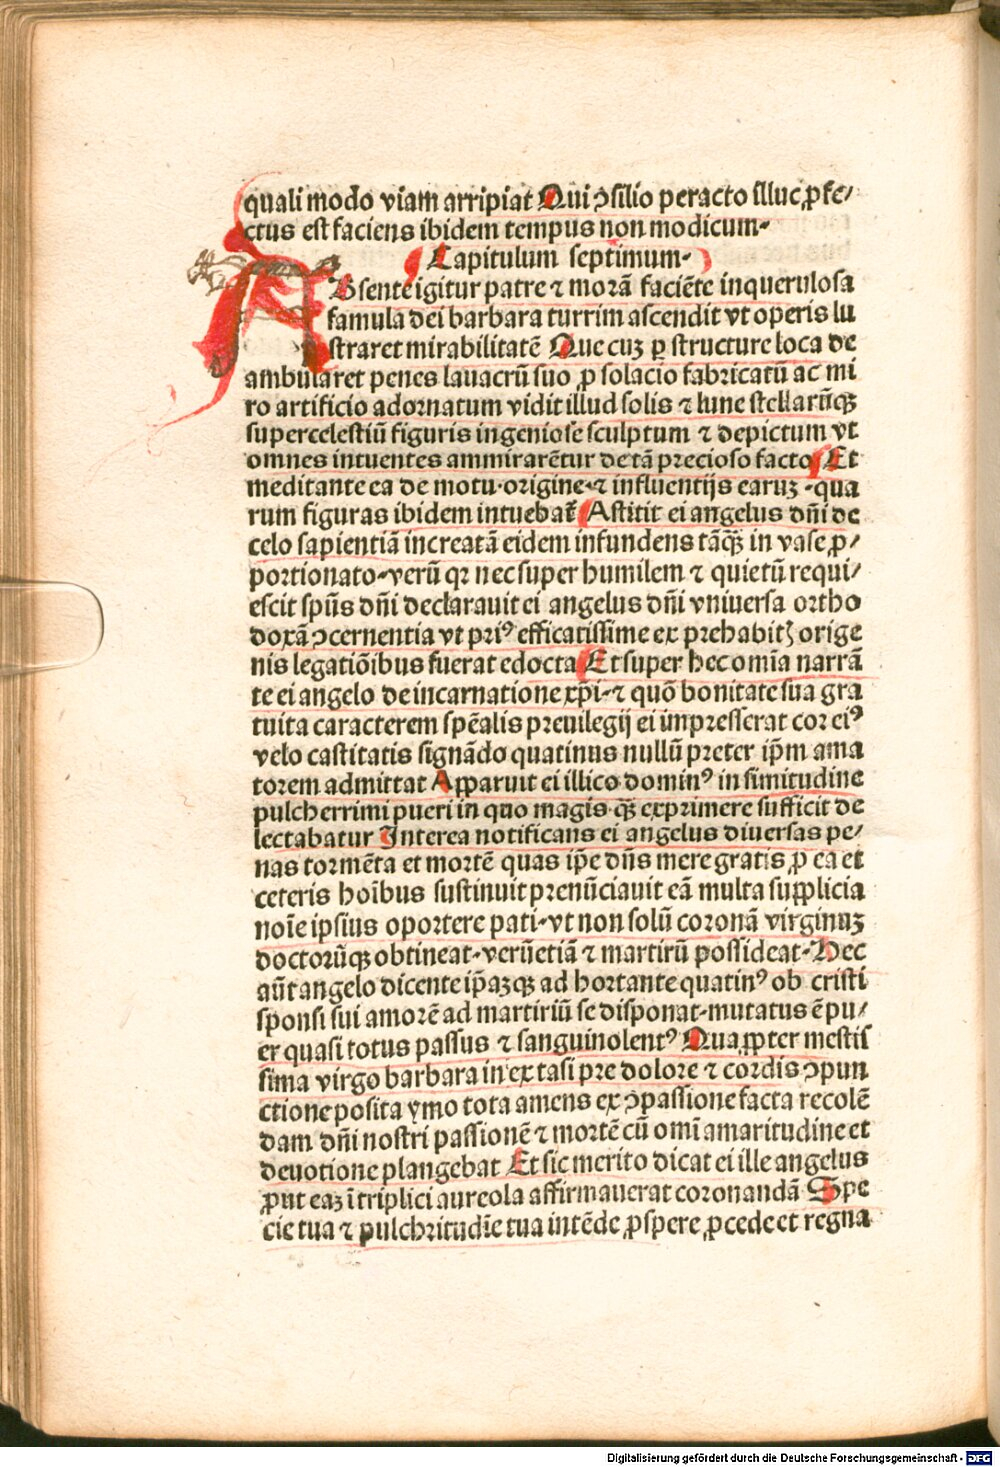 quali modo viam arripiat Qui ꝯsilio peracto illuc ꝓfe⸗
ctus est faciens ibidem tempus non modicum.
Capitulum septimum.
ABsente igitur patre ⁊ morā faciēte inquerulosa
famula dei barbara turrim ascendit vt operis lu
straret mirabilitatē Que cuʒ ꝑ structure loca de
ambularet penes lauacrū suo ꝓ solacio fabricatū ac mi
ro artificio adornatum vidit illud solis ⁊ lune stellarūqʒ
supercelestiū figuris ingeniose sculptum ⁊ depictum vt
omnes intuentes ammirarētur de tā precioso facto Et
meditante ea de motu·origine·⁊ influentijs earuʒ ·qua
rum figuras ibidem intuebat̄ Astitit ei angelus dn̄i de
celo sapientiā increatā eidem infundens tāqʒ̄ in vase ꝓ⸗
portionato·verū qꝛ nec super humilem ⁊ quietū requi⸗
escit spūs dn̄i declarauit ei angelus dn̄i vniuersa ortho
doxā ꝯcernentia vt priꝰ efficatissime ex prehabitʒ orige
nis legatiōibus fuerat edocta Et super hec om̄ia narrā
te ei angelo de incarnatione xp̄i·⁊ quō bonitate sua gra
tuita caracterem spēalis preuilegij ei impresserat cor eiꝰ
velo castitatis signādo quatinus nullū preter ip̄m ama
torem admittat Apparuit ei illico dominꝰ in simitudine
pulcherrimi pueri in quo magis qʒ̄ exprimere sufficit de
lectabatur Interea notificans ei angelus diuersas pe⸗
nas tormēta et mortē quas ip̄e dn̄s mere gratis ꝓ ea et
ceteris hoībus sustinuit prenūciauit eā multa supplicia
noīe ipsius oportere pati·vt non solū coronā virginuʒ
doctorūqʒ obtineat·verūetiā ⁊ martirū possideat·Hec
aūt angelo dicente ip̄aʒqʒ ad hortante quatinꝰ ob cristi
sponsi sui amorē ad martiriū se disponat·mutatus ē pu⸗
er quasi totus passus ⁊ sanguinolentꝰ Quaꝓpter mestis
sima virgo barbara in extasi pre dolore ⁊ cordis ꝯpun
ctione posita ymo tota amens ex ꝯpassione facta recolē
dam dn̄i nostri passionē ⁊ mortē cū omi amaritudine et
deuotione plangebat Et sic merito dicat ei ille angelus
ꝓut eaʒ ī triplici aureola affirmauerat coronandā Spe
cie tua ⁊ pulchritudīe tua intēde ꝓspere ꝓcede et regna
Digitalisierung gefördert durch die Deutsche Forschungsgemeinschaft - DFG